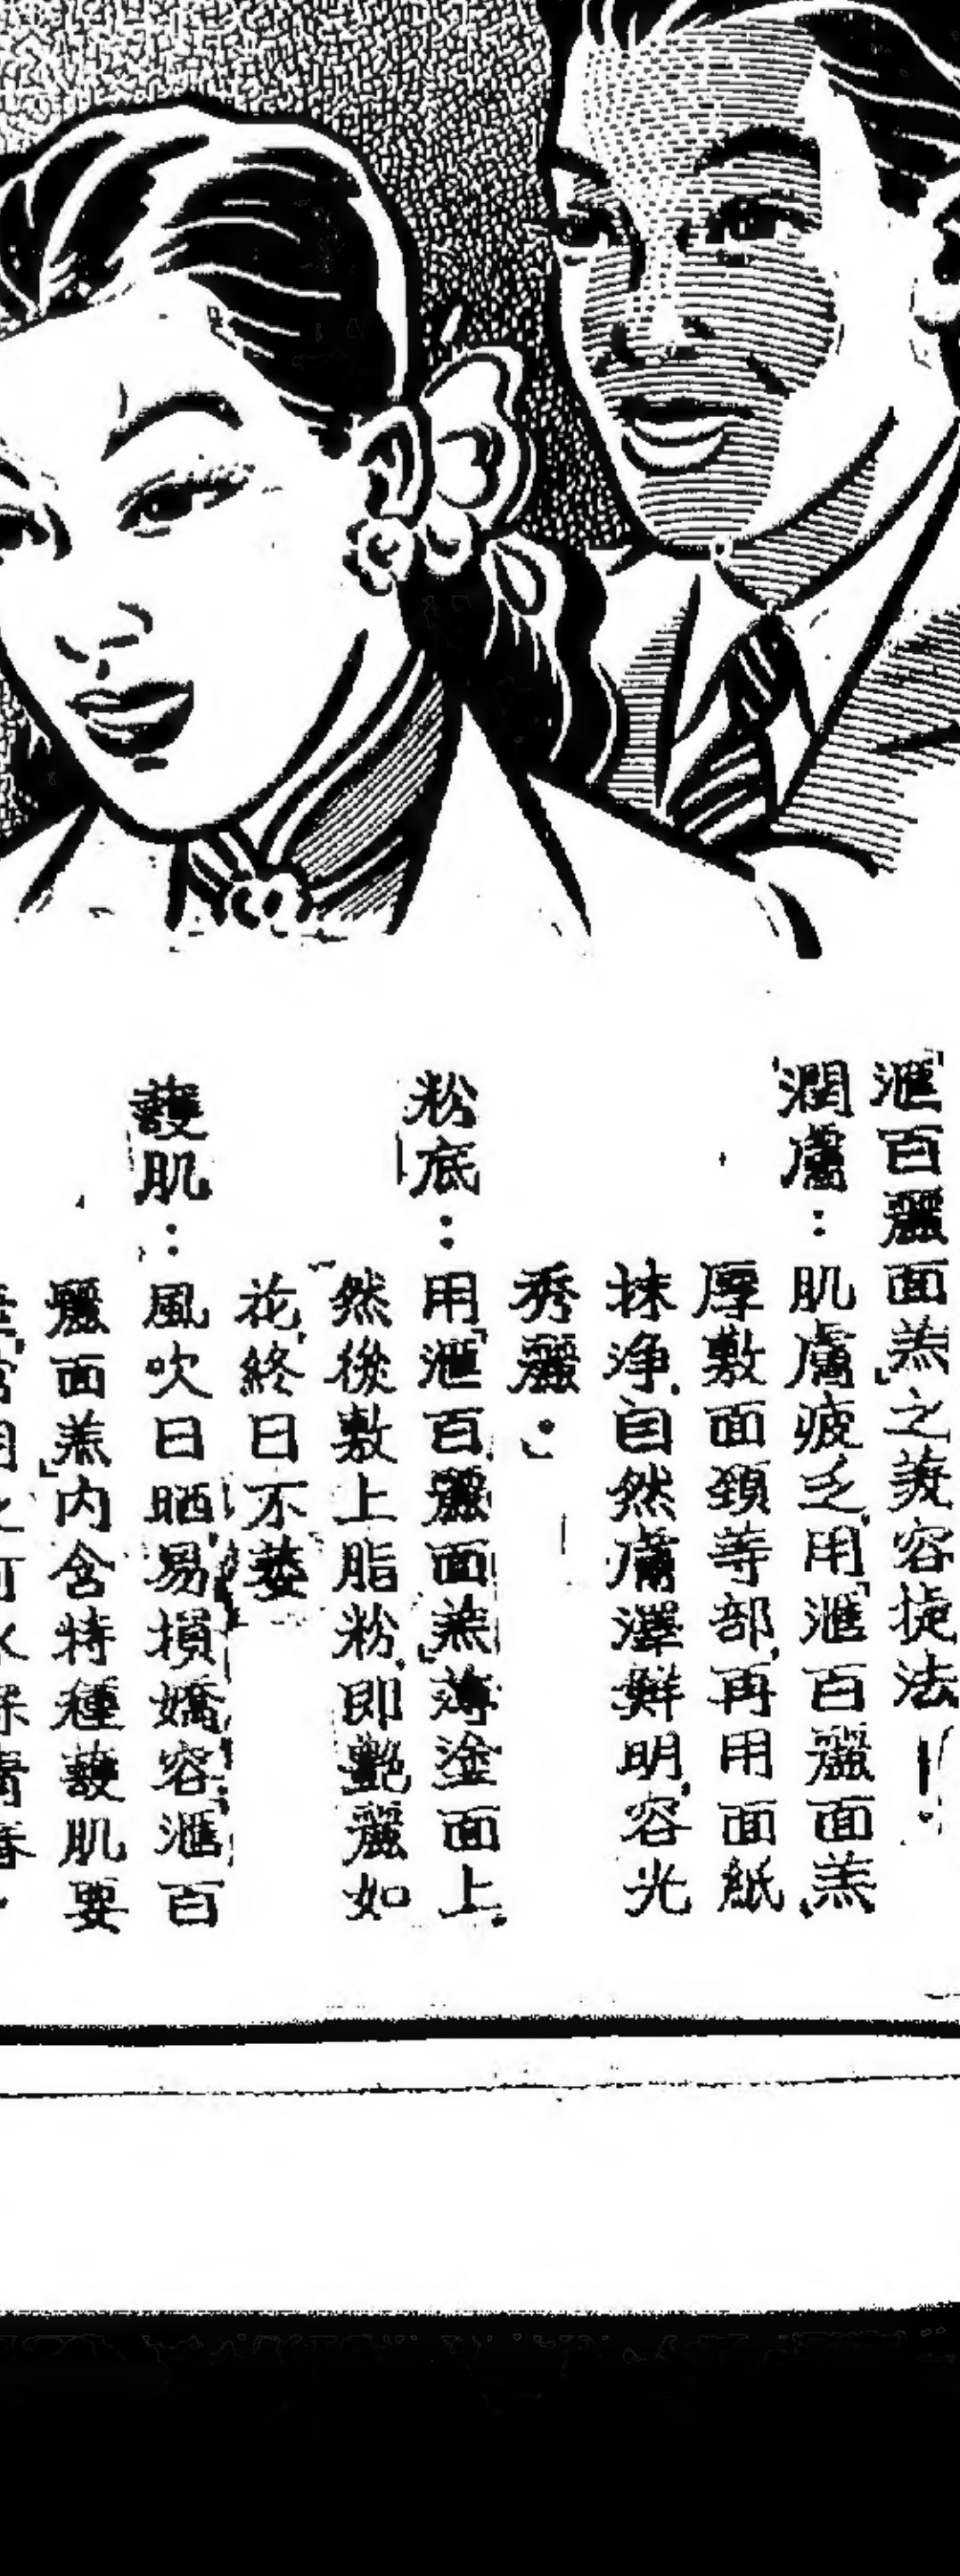 滙百麗面羔之美容捷法——
潤膚：肌膚疲乏，用「滙百麗面羔」
厚敷面頸等部，再用面紙
抹净，自然膚澤鮮明，容光
秀麗。
粉底：用「滙百麗面羔」薄塗面上，
然後敷上脂粉，即艷麗如
花，終日不萎
護肌：風吹日晒，易損嬌容，「滙百
麗面羔」內含特種護肌要